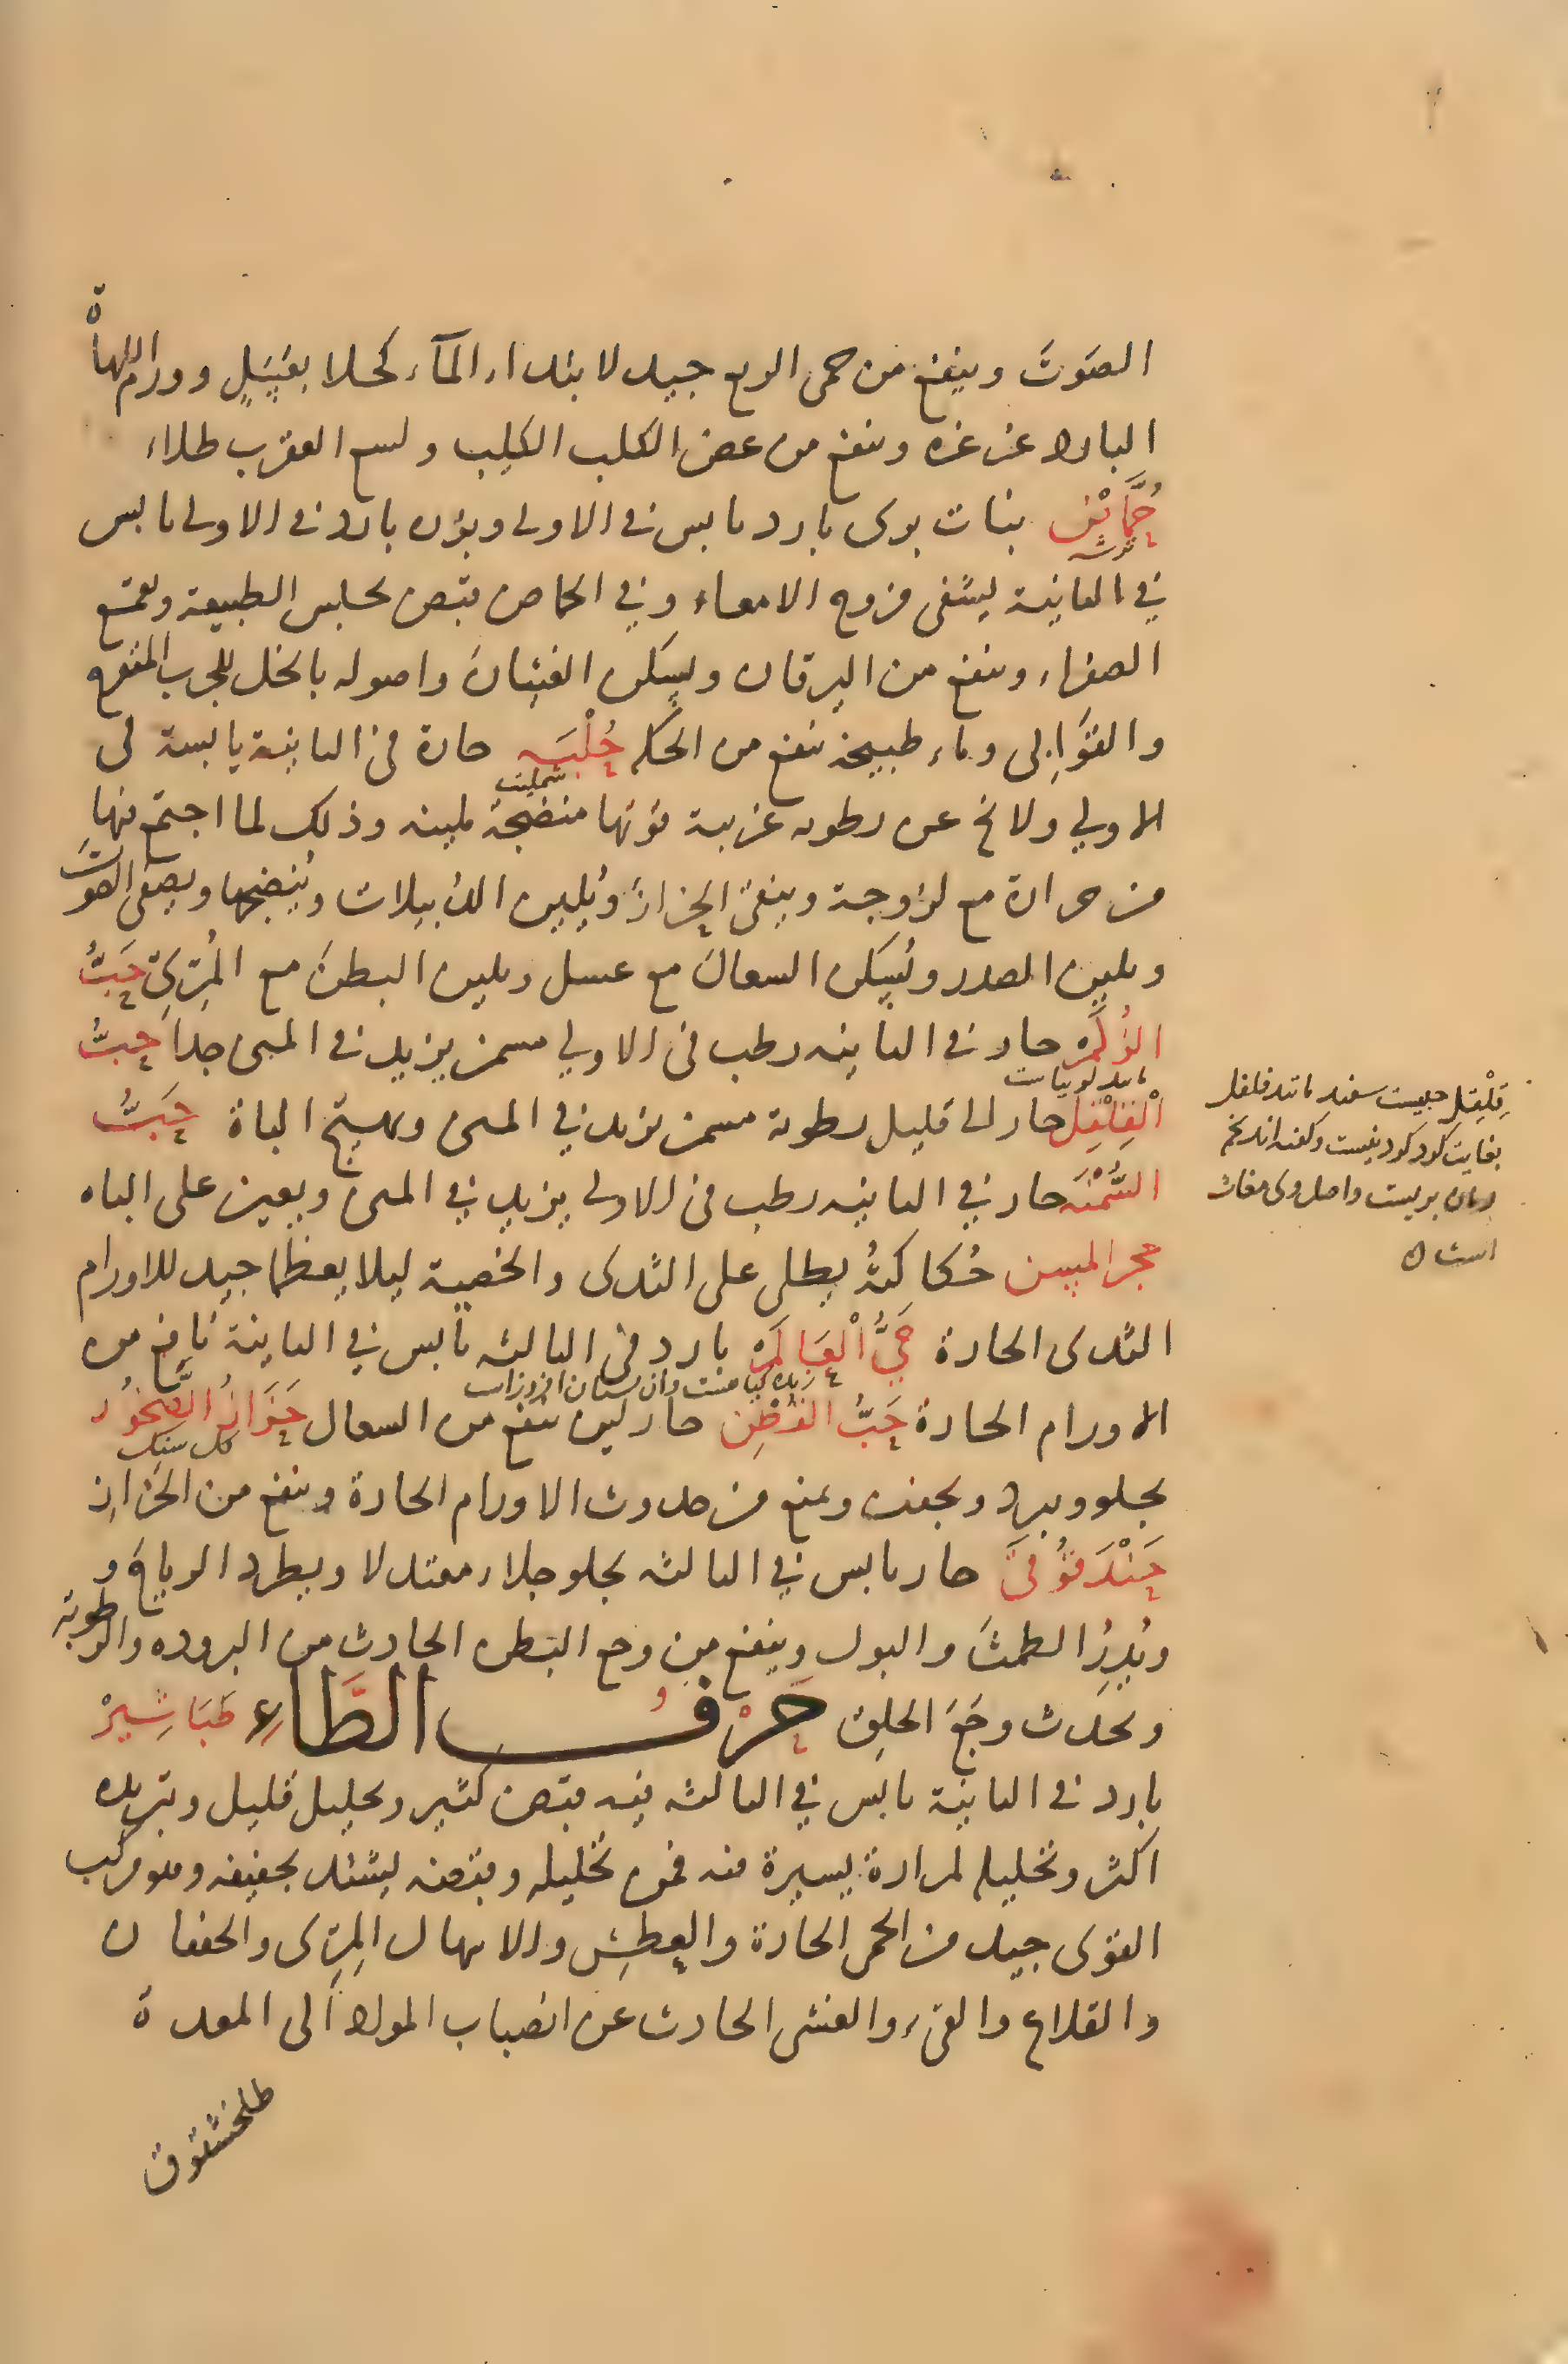 الصَوتَ وينفع من حمى الربع جيد لابتداء المآء كحلا بعَسَلٍ وورم اللهاة
الباردة غرغرة وينفع من عض الكلب الكلِب ولسع العقرب طلاء
حُمَّاض نبات بري بارد يابس في الاولى وبزره بارد في الاولى يابس
ترشه
في الثانية يشفى قروح الامعاء وفي الحماض قبض يحبس الطبيعة ويقمع
الصفراء وينفع من اليرقان ويسكن الغثيان واصوله بالخل للجرب المتقرح
والقوابى وماء طبيخه ينفع من الحكه حُلْبَه حارة في الثانية يابسة في
شمليت
الاولي ولا تخ عن رطوبه غريبة قوتها منضجة ملينه وذلك لما اجتمع فيها
من حرارة مع لزوجة وينقى الحزازَ ويُليين الدُبيلات ويُنضجها ويصفى الصوتَ
ويلين الصدر ويُسَكن السعالَ مع عسل ويلين البطنَ مع المُرّيّ حَبُّ
الزُلَم حار في الثانيه رطب في الاولي مسمن يزيد في المنى جدا حَبُّ
مانند لوبياست
الْقِلْقِل حار له قليل رطوبة مسمن يزيد في المنى ويهيج الباة حَبُّ
السُّمْنَه حار في الثانيه رطب في الاولى يزيد في المنى ويعين على الباه
حجر المسن حُكاكتهُ يطلى على الثدى والخصية ليلا يعظما جيد للاورام
الثدى الحادة حَيُّ الْعَالَم بارد في الثالثه يابس في الثانية نافع من
الاورام الحادة حَبُّ القُطْن حار لين ينفع من السعال حَزَازُ الصُّخُور
كل سنك
يجلو ويبرد ويجفف ويمنع من حدوث الاورام الحادة وينفع من الحَزازِ
حَنْدَقُوقَى حار يابس في الثالثه يجلو جلاء معتدلا ويطرد الرياح و
ويُدِرُ الطمثَ والبول وينفع من وجع البَطن الحادث من البروده والرطوبة
ويحدث وجَعَ الحلق حَرْفُ الطَّاءِ طَبَاشِيرْ
بارد في الثانية يابس في الثالثه فيه قبض كثير وتحليل قليل وتبريده
اكثر وتحليله لمرارة يسيرة فيه فمن تحليله وقبضه يشتد تجفيفه وهو مركب
القوى جيد من الحمى الحادة والعطش والاسهال المِرّى والخفقان
والقلاع والقئ والغشى الحادث عن انصباب المواد الى المعدة
طلخشقوق
قِلْقِل حبيست سفيد مانند فلفل
بغايت كرد كرد نيست وكفته اند تخم
رمان بريست واصل وى مغاث
است